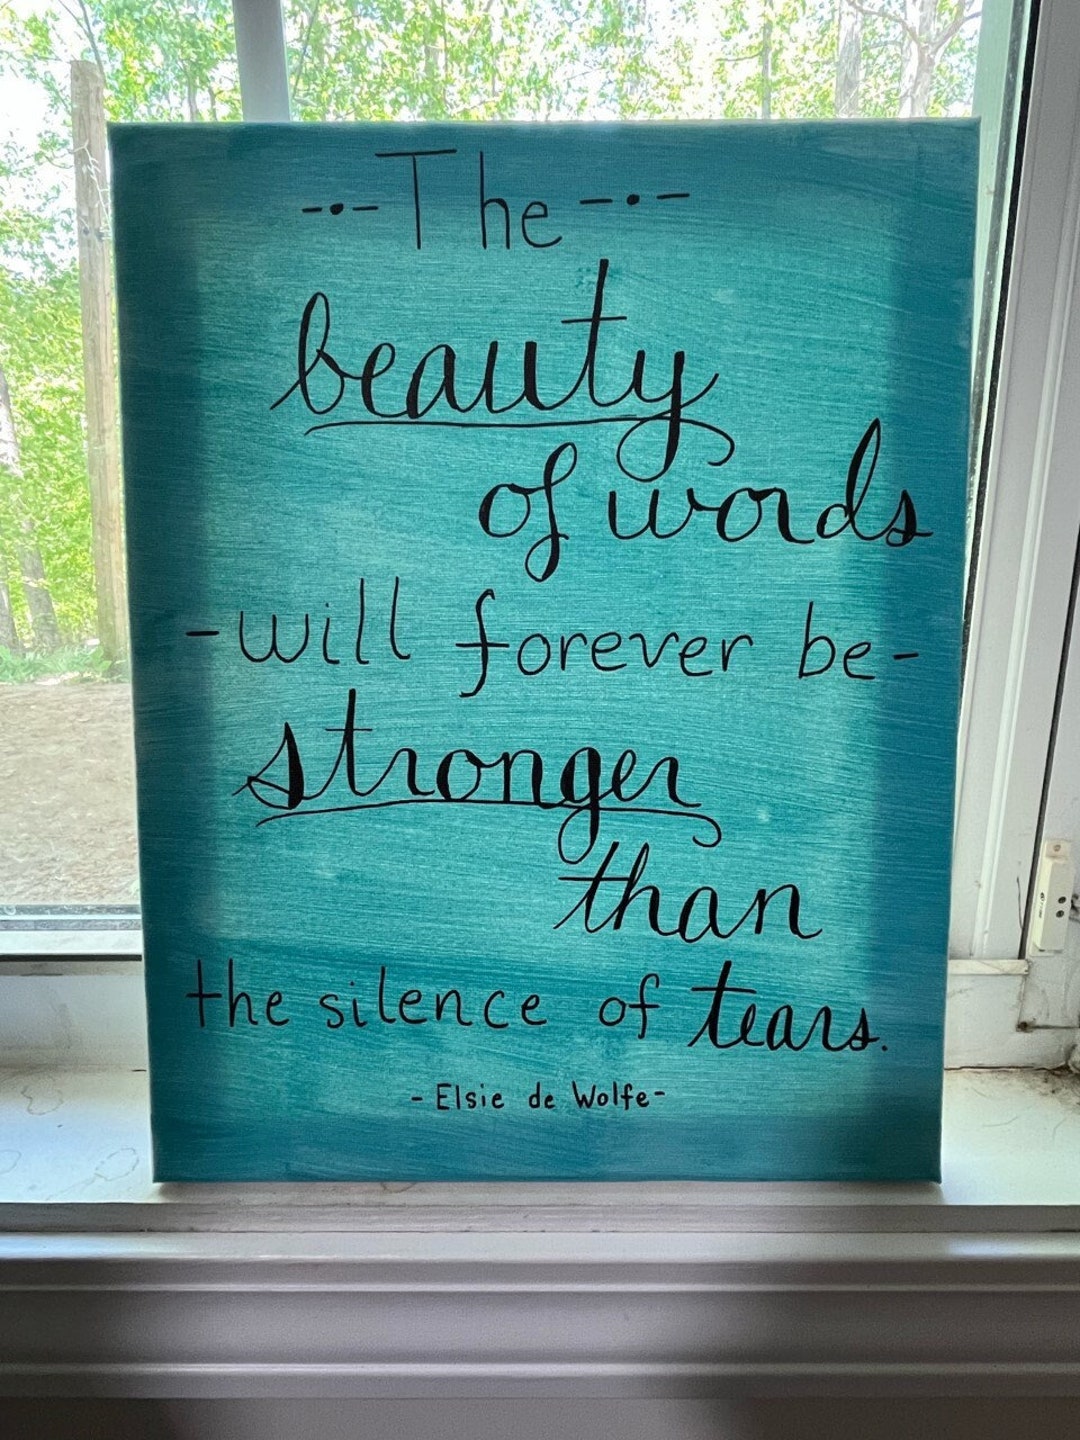 --•- The -•-
beauty
of words
-will forever be-
stronger
than
the silence of tears.
- Elsie de Wolfe-